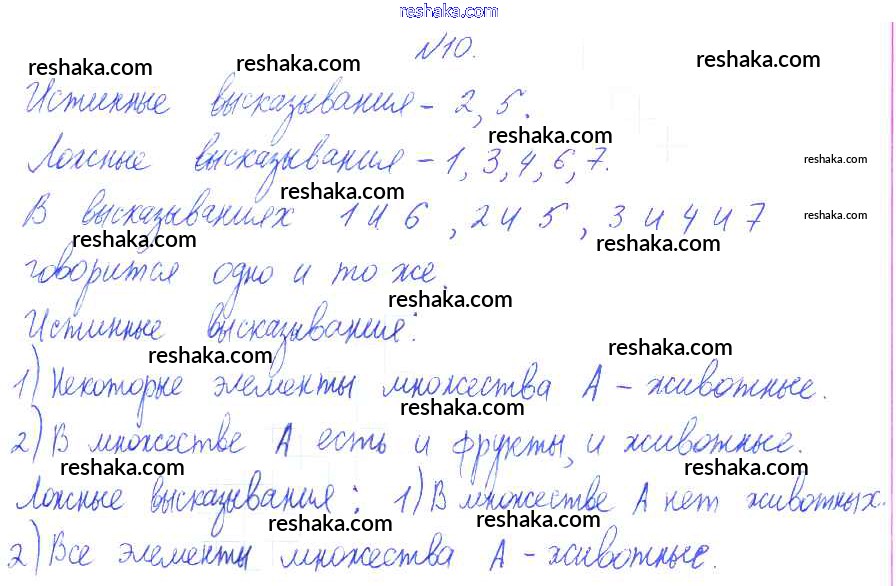 reshaka.com
№10.
reshaka.com reshaka.com reshaka.com
Истинные высказывания - 2, 5.
reshaka.com
Ложные высказывания - 1, 3, 4, 6, 7.
reshaka.com
reshaka.com
В высказываниях 1 и 6, 2 и 5, 3 и 4 и 7
reshaka.com
reshaka.com reshaka.com
говорится одно и то же.
reshaka.com
Истинные высказывания:
reshaka.com reshaka.com
1) Некоторые элементы множества А - животные.
reshaka.com
2) В множестве А есть и фрукты, и животные.
reshaka.com reshaka.com
Ложные высказывания: 1) В множестве А нет животных.
reshaka.com reshaka.com
2) Все элементы множества А - животные.